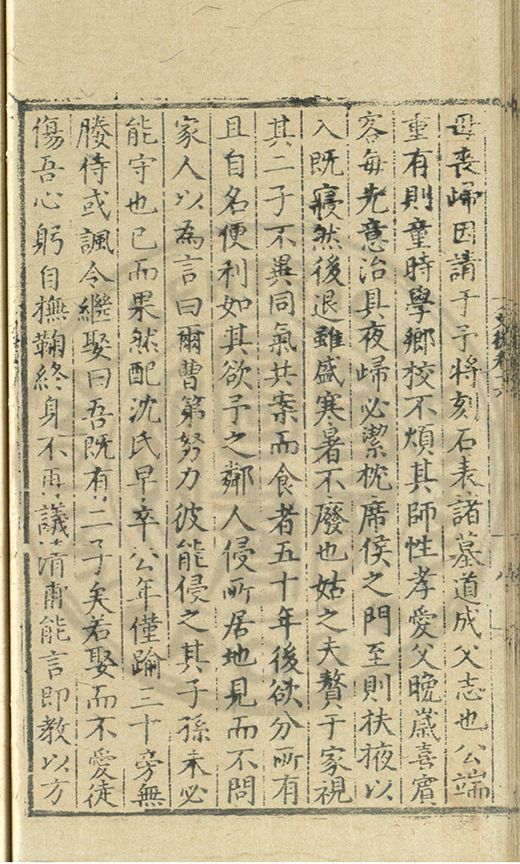 母喪歸因請于予將刻石表諸墓道成父志也公端
重有則童時學鄉校不煩其師性孝愛父晚歲喜賓
客每先意治具夜歸必潔枕席侯之門至則扶掖以
入既寢然後退雖盛寒暑不廢也姑之夫贅于家視
其二子不異同氣共案而食者五十年後欲分所有
且自名便利如其欲予之鄰人侵所居地見而不問
家人以為言曰爾曹第努力彼能侵之其子孫未必
能守也已而果然配沈氏早卒公年僅踰三十旁無
媵侍或諷令繼娶曰吾既有二子矣若娶而不愛徒
傷吾心躬自撫鞠終身不再議清甫能言即教以方